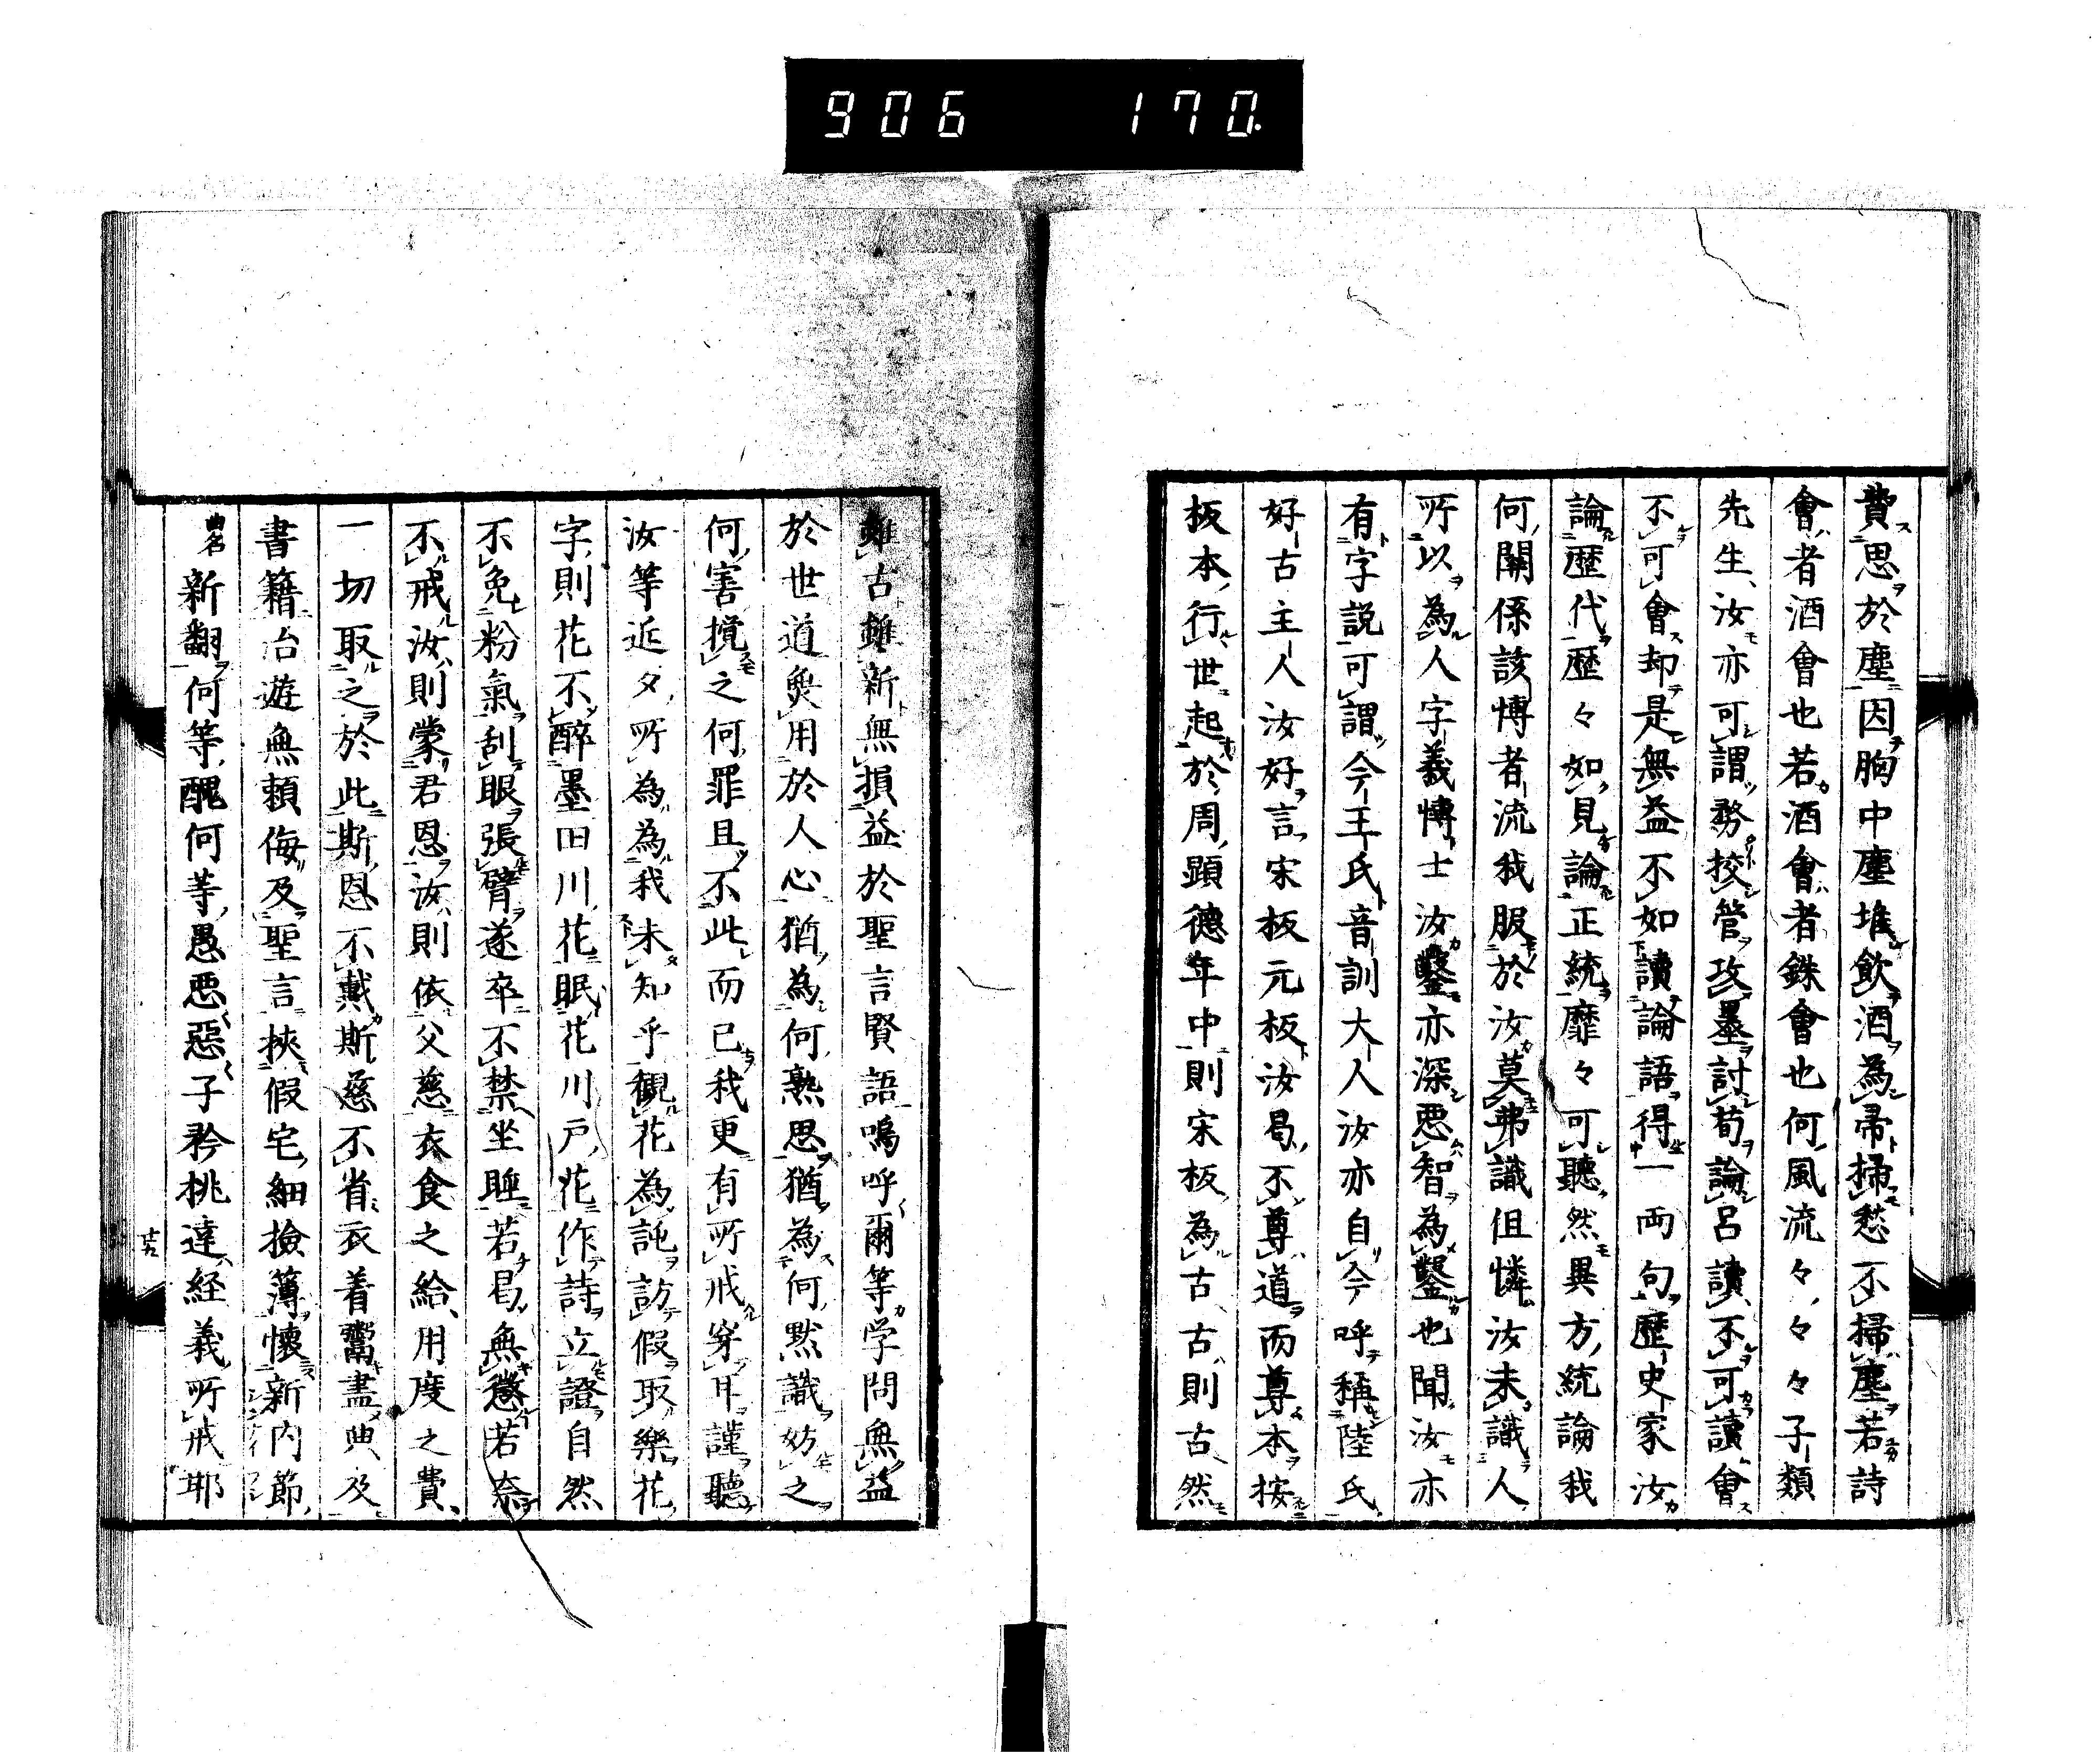 906 170.
費思於塵因胸中塵堆飲酒為帚掃愁不掃塵若詩
會者酒會也若酒會者銖會也何風流々々々子類
先生汝亦可謂務挍管攻墨討荀論呂讀不可讀會
不可會却是無益不如讀論語得一両句歴史家汝
論歴代歴々如見論正統靡々可聽然異方統論我
何關係該博者流我服於汝莫弗識但憐汝未識人
所以為人字義博士汝鑿亦深惡智為鑿也聞汝亦
有字説可謂今王氏音訓大人汝亦自今呼稱陸氏
好古主人汝好言宋板元板汝曷不尊道而尊本按
板本行世起於周顕德年中則宋板為古古則古然
雖古雖新無損益於聖言賢語嗚呼爾等学問無益
於世道無用於人心猶為何熟思猶為何黙識妨之
何害攪之何罪且不此而已我更有所戒穿耳謹聽
汝等近夕所為為我未知乎観花為詫訪假取樂花
字則花不醉墨田川花眠花川戸花作詩立證自然
不免粉氣刮眼張臂遂卒不禁坐睡若曷無懲若奈
不戒汝則蒙君恩汝則依父慈衣食之給用度之費
一切取之於此斯恩不戴斯慈不省衣着鬻盡典及
書籍台遊無頼侮及聖言挾假宅細撿薄懷新内節
曲名新翻何等醜何等愚惡惡子矜挑達経義所戒耶
十九